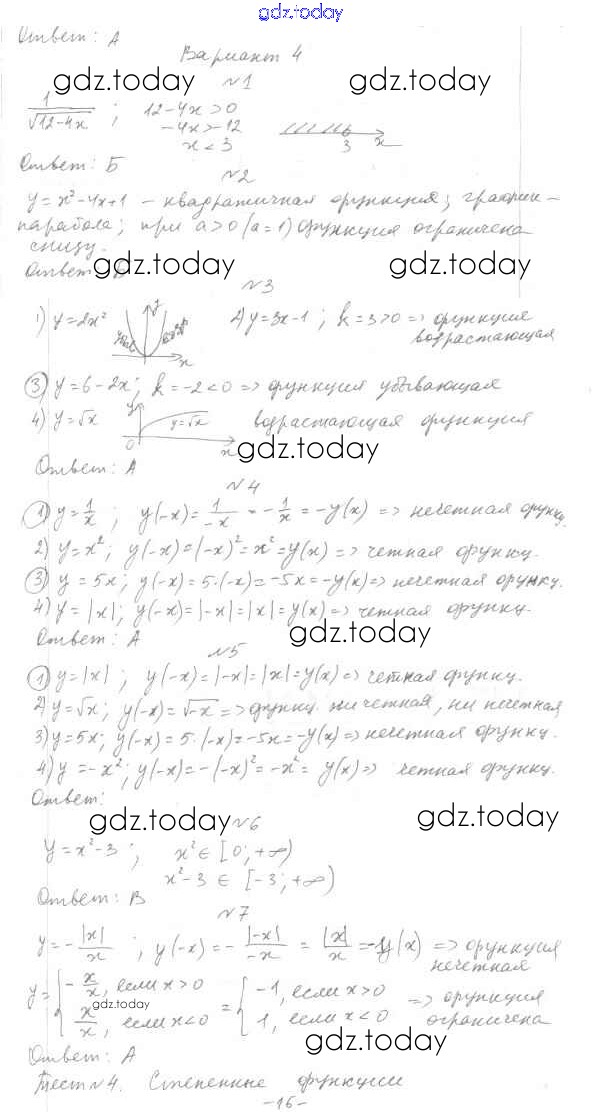 gdz.today
Ответ: А
Вариант 4
gdz.today gdz.today
№1
1/√12-4x ; 12-4x>0
-4x>-12
x<3
3 x
Ответ: Б
№2
y=x²-4x+1 – квадратичная функция; график –
парабола; при a>0 (a=1) функция ограничена
снизу.
Ответ:
gdz.today gdz.today
№3
1) y=2x² y x 2) y=3x-1 ; k=3>0 => функция
возрастающая
3) y=6-2x; k=-2<0 => функция убывающая
4) y=√x y y=√x 0 x возрастающая функция
gdz.today
Ответ: А
№4
1) y=1/x ; y(-x)=1/-x = -1/x = -y(x) => нечетная функц.
2) y=x²; y(-x)=(-x)²=x²=y(x) => четная функц.
3) y=5x; y(-x)=5·(-x)=-5x=-y(x) => нечетная функц.
4) y=|x|; y(-x)=|-x|=|x|=y(x) => четная функц.
Ответ: А
gdz.today
№5
1) y=|x| ; y(-x)=|-x|=|x|=y(x) => четная функц.
2) y=√x; y(-x)=√-x => функц. ни четная, ни нечетная
3) y=5x; y(-x)=5·(-x)=-5x=-y(x) => нечетная функц.
4) y=-x²; y(-x)=-(-x)²=-x²= y(x) => четная функц.
Ответ:
gdz.today gdz.today
№6
y=x²-3 ; x²∈[0;+∞)
x²-3 ∈ [-3;+∞)
Ответ: В
№7
y=-|x|/x ; y(-x)=-|-x|/-x = |x|/x =-y(x) => функция
нечетная
y={ -x/x, если x>0 = { -1, если x>0 => функция
x/x, если x<0 1, если x<0 ограничена
gdz.today
gdz.today
Ответ: А
Тест №4. Степенные функции
-16-